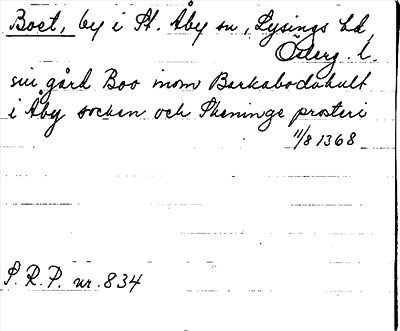 Boet, by i St. Åby sn, Lysings hd,
Österg. l.
sin gård Boo inom Barkabodahult
i Åby socken och Skeninge prosteri
11/8 1368
S. R. P. nr. 834